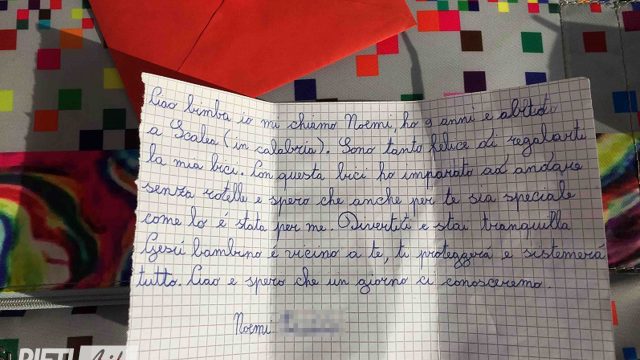 Ciao bimba io mi chiamo Noemi, ho 9 anni e abito
a Scalea (in calabria). Sono tanto felice di regalarti
la mia bici. Con questa bici ho imparato ad andare
senza rotelle e spero che anche per te sia speciale
come lo é stata per me. Divertiti e stai tranquilla
Gesú bambino e vicino a te, ti proteggera e sistemerá
tutto. Ciao e spero che un giorno ci conosceremo.
Noemi
RIETI Life